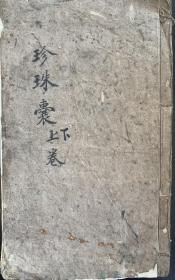 珍珠囊上下卷